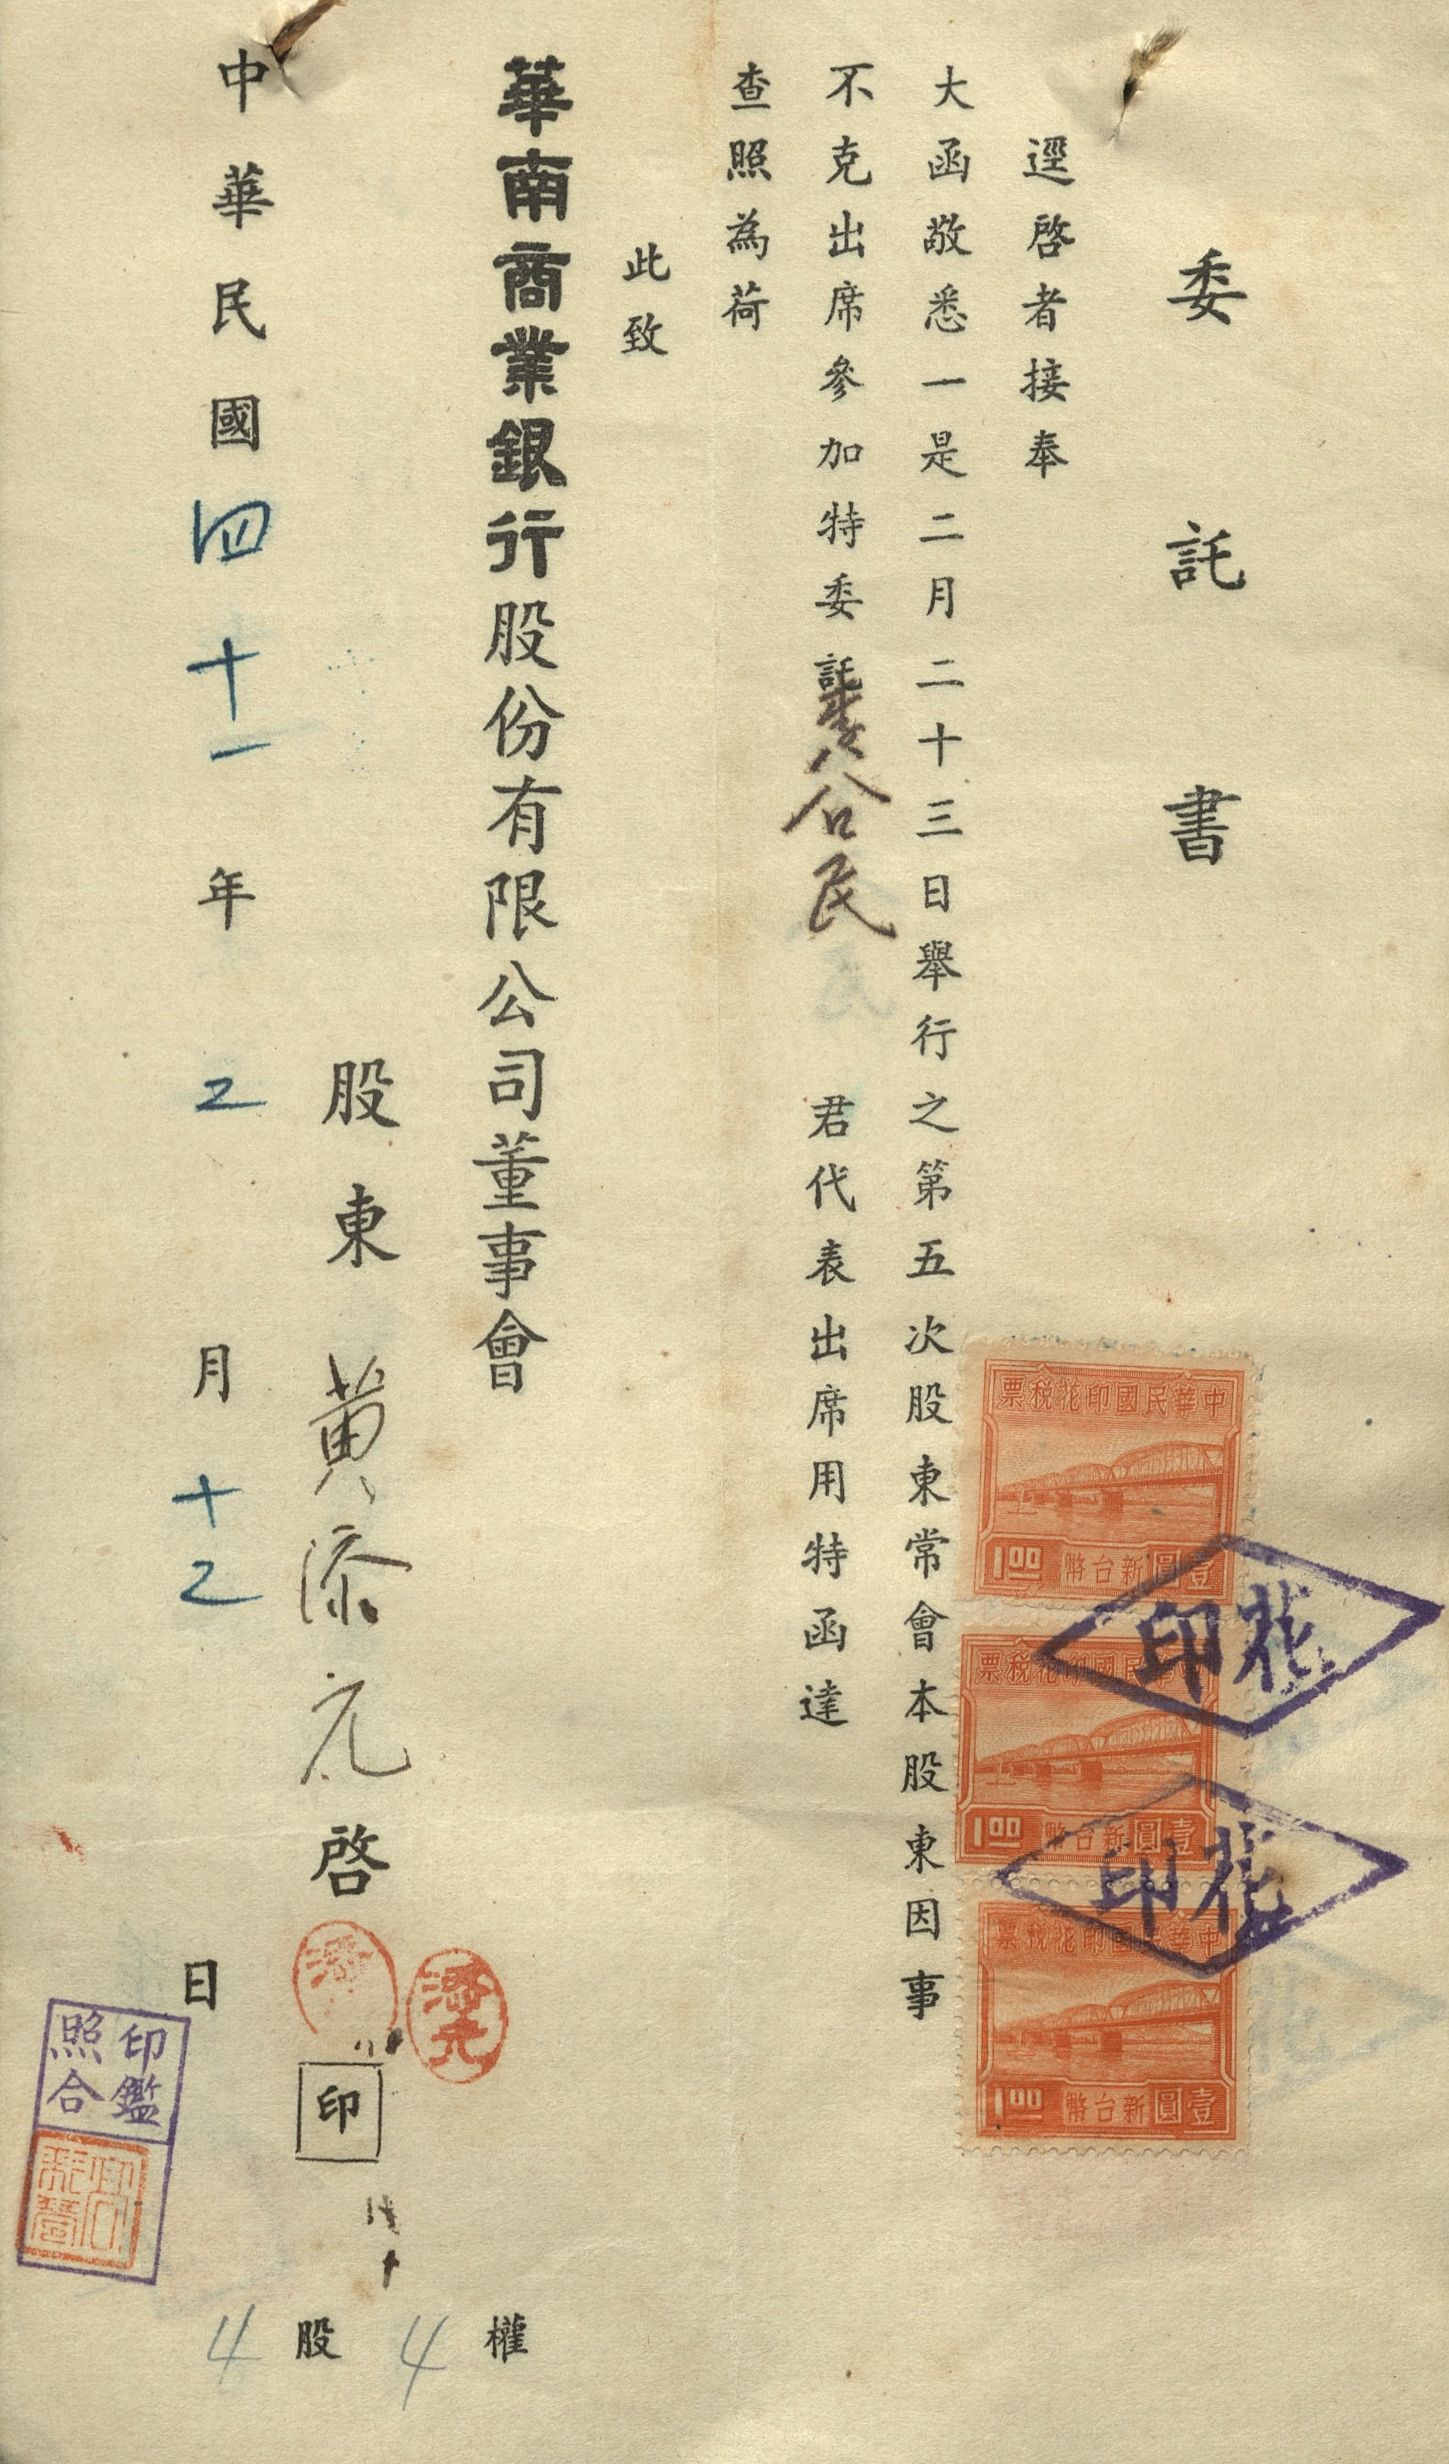 委託書
逕啓者接奉
大函敬悉一是二月二十三日舉行之第五次股東常會本股東因事
不克出席參加特委託 公民 君代表出席用特函達
查照為荷
此致
華南商業銀行股份有限公司董事會
股東 黃添元 啓 印
添元
中華民國四十一年 2 月 十2 日
4 股 4 權
印鑑
照合
中華民國印花稅票
1.00 壹圓新台幣
中華民國印花稅票
1.00 壹圓新台幣
中華民國印花稅票
1.00 壹圓新台幣
印花
印花